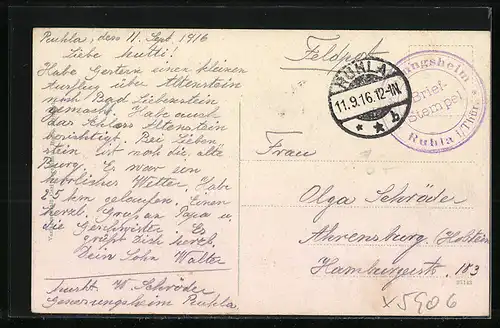 Ruhla, den 11. Sept. 1916
Liebe Mutti!
Habe Gestern einen kleinen
Ausflug über Altenstein
nach Bad Liebenstein
gemacht. Habe auch
das Schloss Altenstein
besichtigt. Bei Lieben-
stein ist noch die alte
Burg. Es war ein
herrliches Wetter. Habe
km gelaufen. Einen
herzl. Gruß an Papa u.
die Geschwister. Es
grüßt Dich herzl.
Dein Sohn Walter
Musk. W. Schröder
Genesungsheim Ruhla
Feldpost
RUHLA
11.9.16.12-1N
* * b
ungsheim
Brief-
Stempel
Ruhla i. Thür.
Frau
Olga Schröder
Ahrensburg (Holstein
Hamburgerstr. 183
X5906